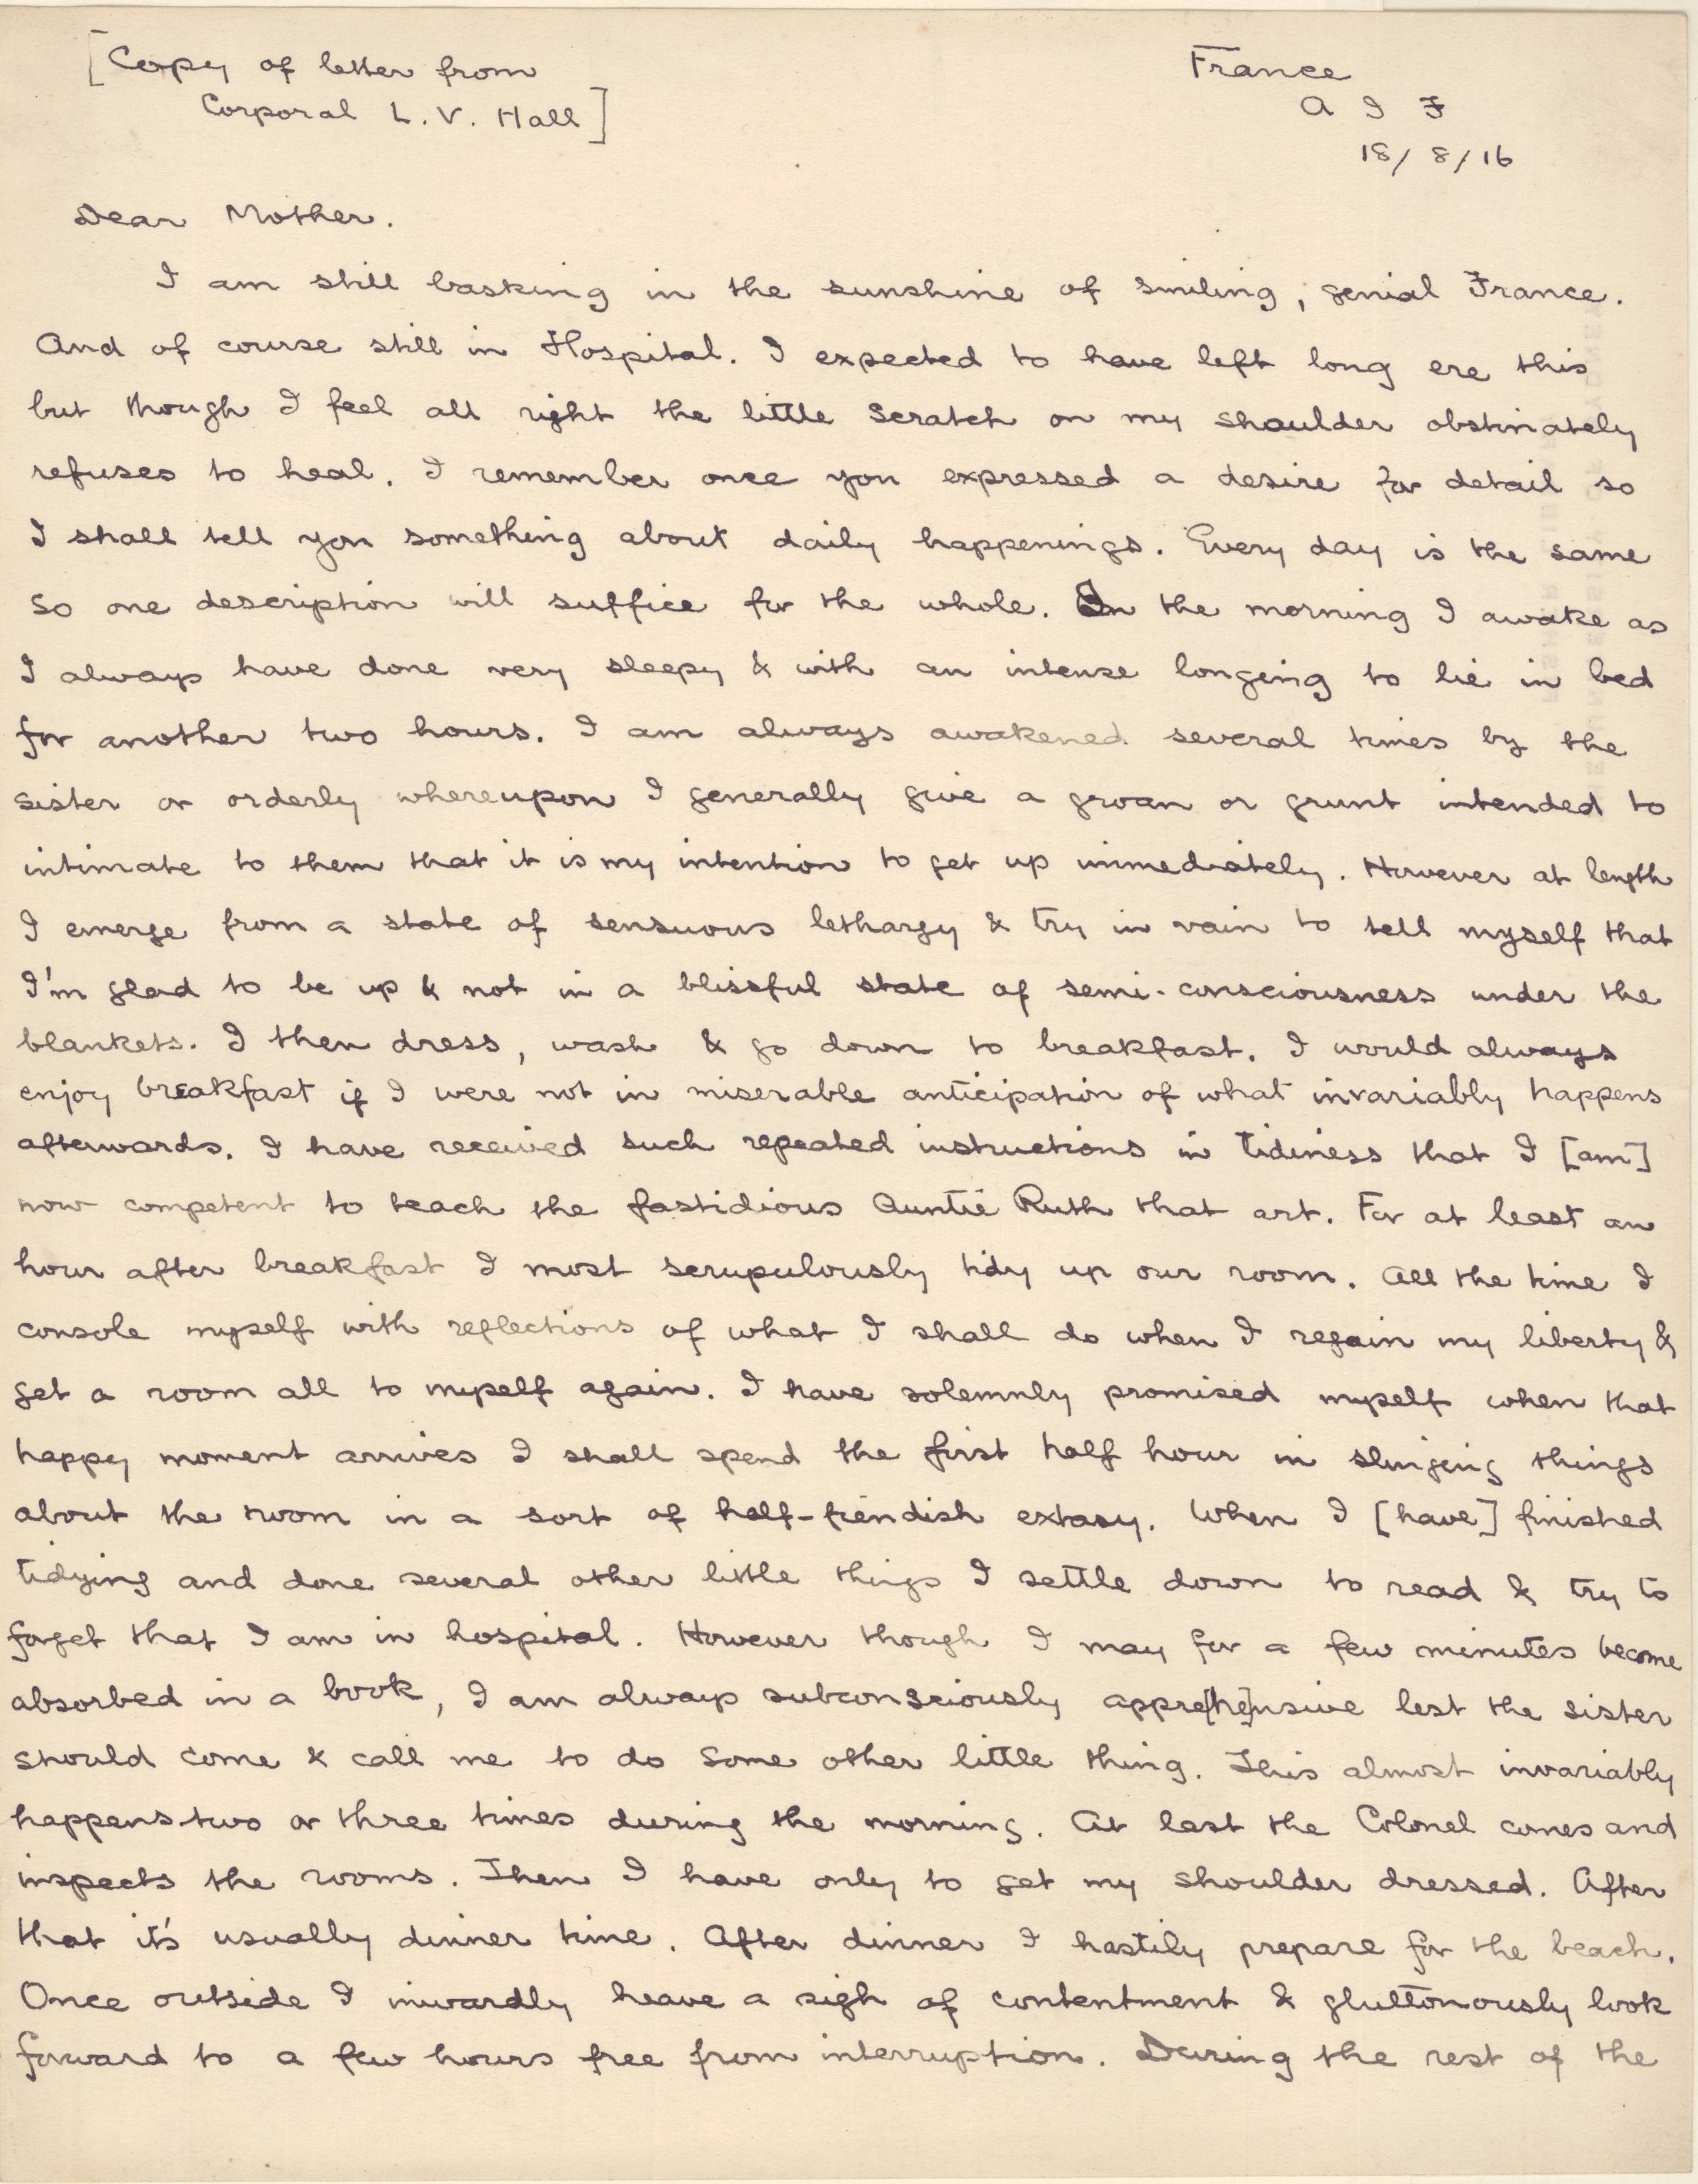 [Copy of letter from
Corporal L. V. Hall]
France
A I F
18/8/16
Dear Mother.
I am still basking in the sunshine of smiling, genial France.
And of course still in Hospital. I expected to have left long ere this
but though I feel all right the little scratch on my shoulder obstinately
refuses to heal. I remember once you expressed a desire for detail so
I shall tell you something about daily happenings. Every day is the same
so one description will suffice for the whole. In the morning I awake as
I always have done very sleepy & with an intense longing to lie in bed
for another two hours. I am always awakened several times by the
sister or orderly whereupon I generally give a groan or grunt intended to
intimate to them that it is my intention to get up immediately. However at length
I emerge from a state of sensuous lethargy & try in vain to tell myself that
I'm glad to be up & not in a blissful state of semi-consciousness under the
blankets. I then dress, wash & go down to breakfast. I would always
enjoy breakfast if I were not in miserable anticipation of what invariably happens
afterwards. I have received such repeated instructions in tidiness that I [am]
now competent to teach the fastidious Auntie Ruth that art. For at least an
hour after breakfast I most scrupulously tidy up our room. All the time I
console myself with reflections of what I shall do when I regain my liberty &
get a room all to myself again. I have solemnly promised myself when that
happy moment arrives I shall spend the first half hour in slinging things
about the room in a sort of half-fiendish extasy. When I [have] finished
tidying and done several other little things I settle down to read & try to
forget that I am in hospital. However though I may for a few minutes become
absorbed in a book, I am always subconsciously appre[he]nsive lest the sister
should come & call me to do some other little thing. This almost invariably
happens two or three times during the morning. At last the Colonel comes and
inspects the rooms. Then I have only to get my shoulder dressed. After
that it's usually dinner time. After dinner I hastily prepare for the beach.
Once outside I inwardly heave a sigh of contentment & gluttonously look
forward to a few hours free from interruption. During the rest of the